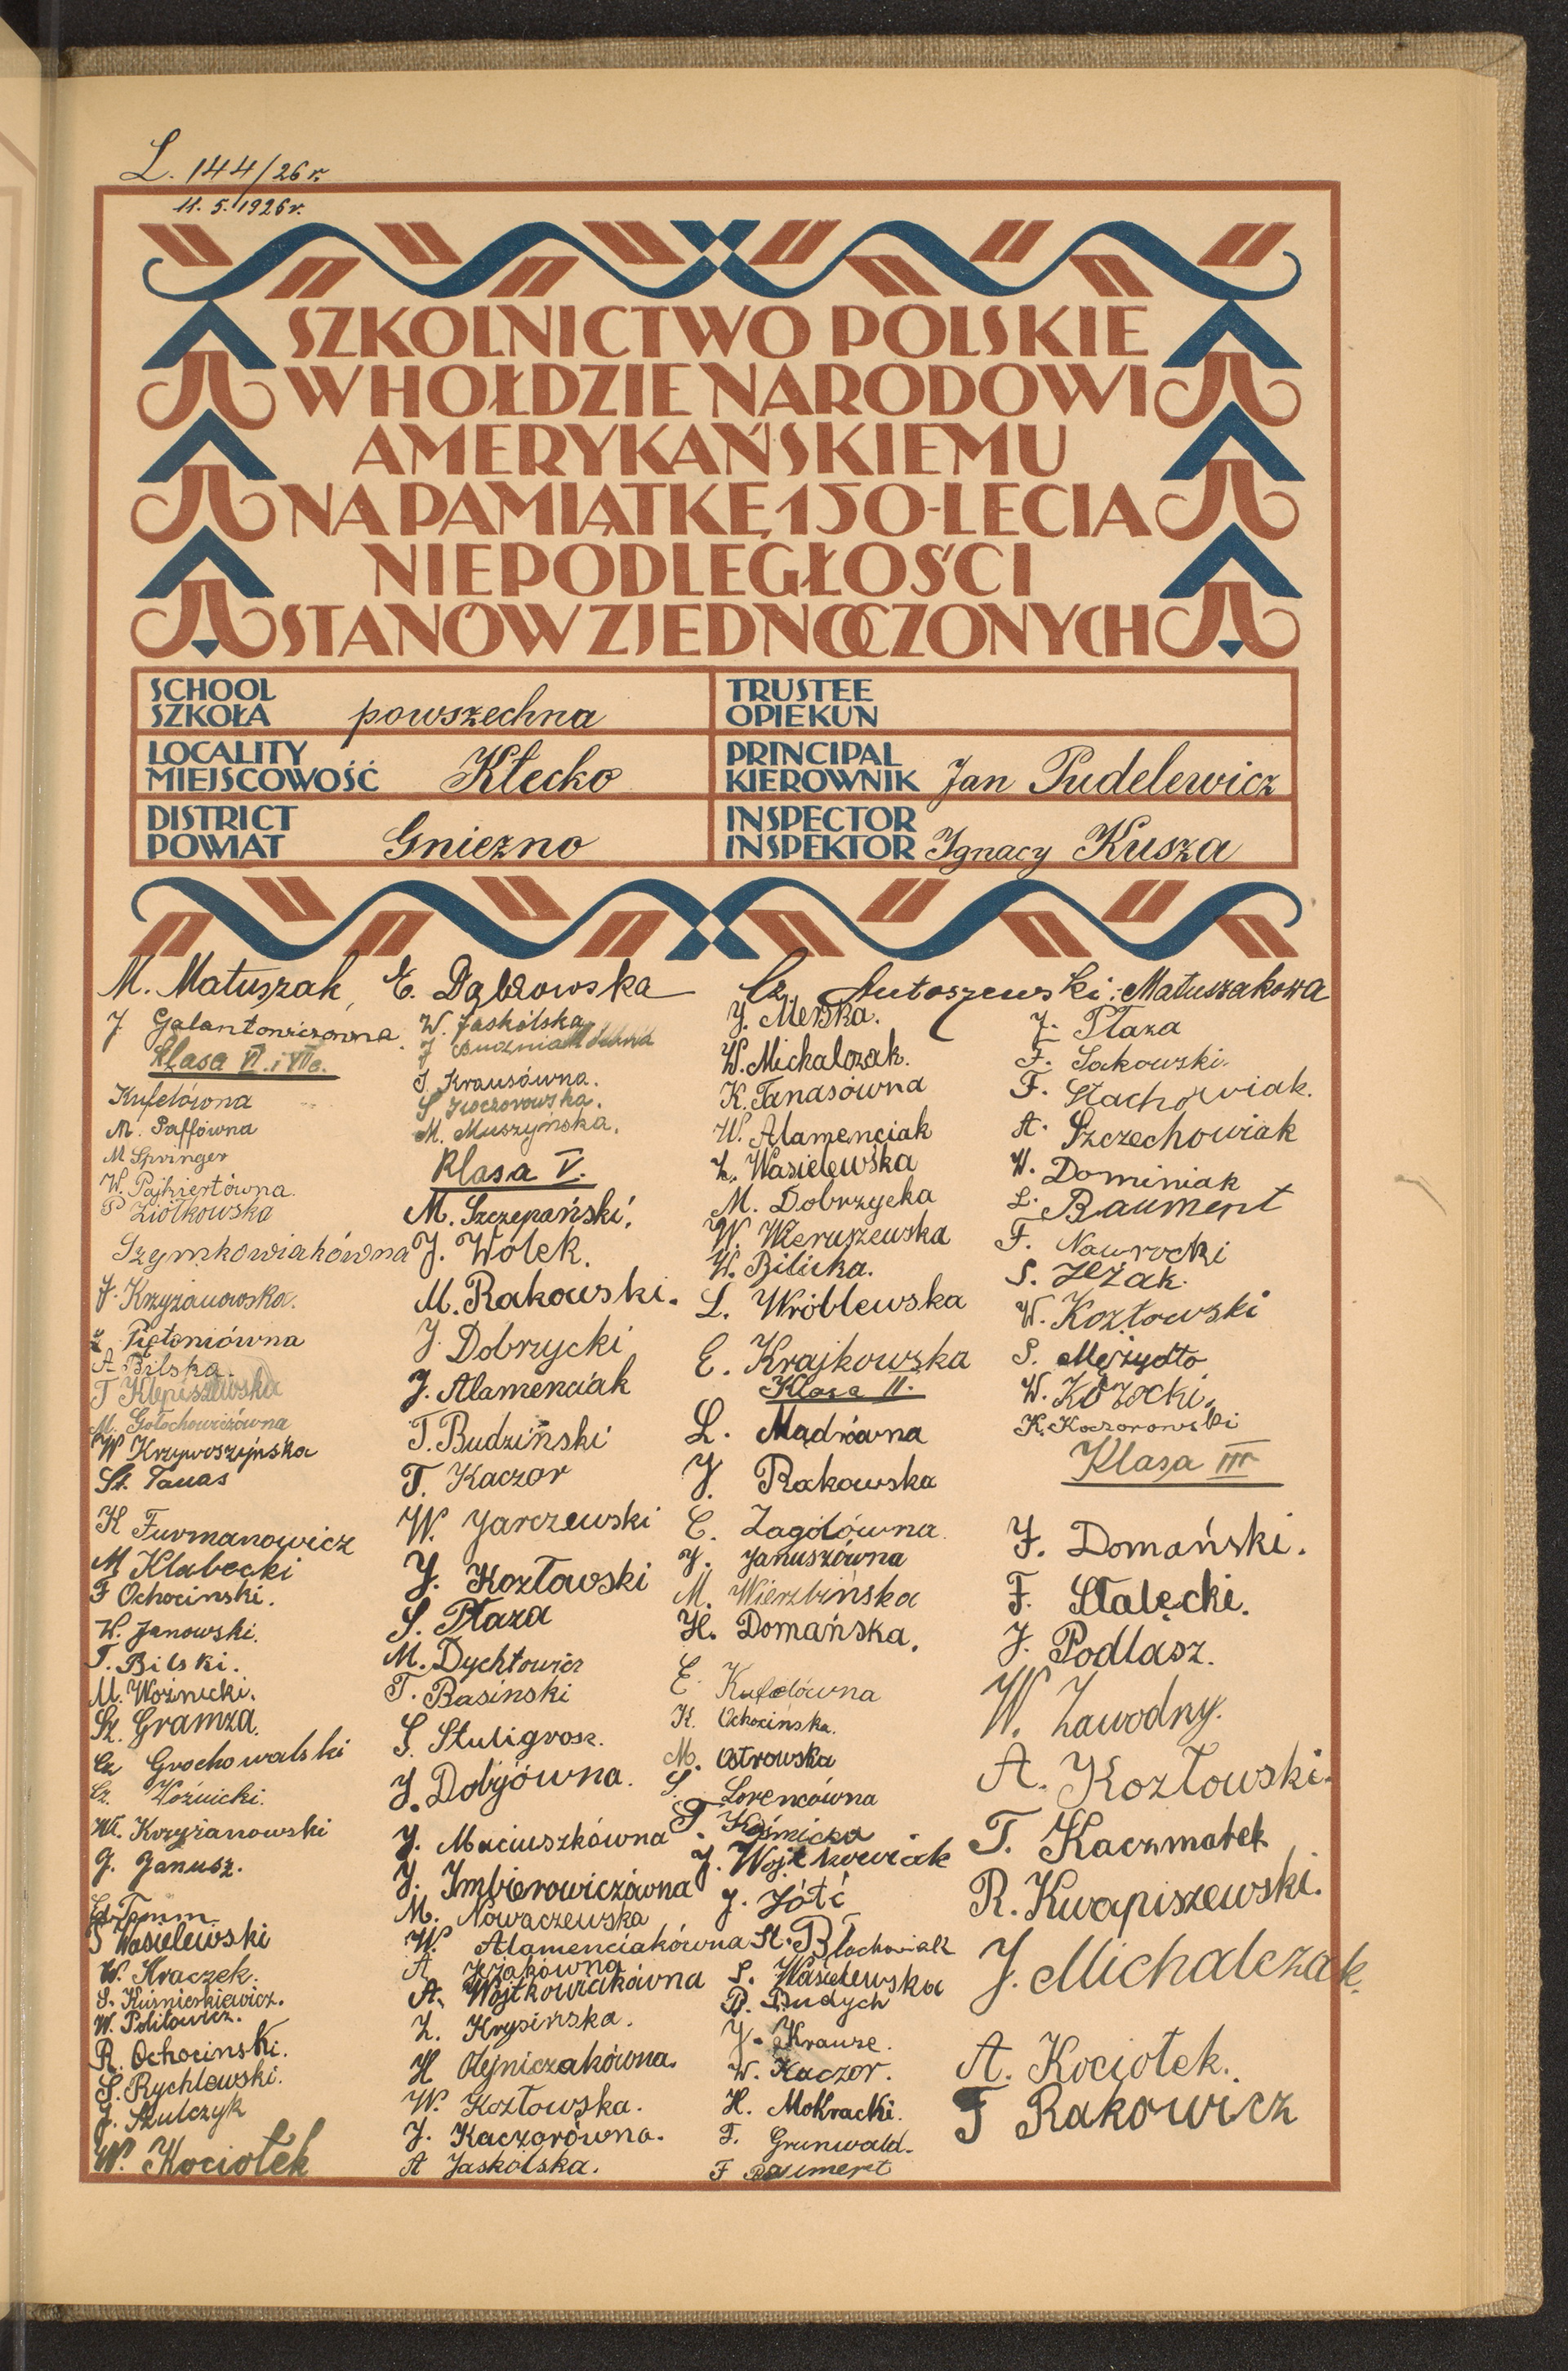 L. 144/26 r.
11. 5. 1926 r.
SZKOLNICTWO POLSKIE
W HOŁDZIE NARODOWI
AMERYKAŃSKIEMU
NA PAMIĄTKĘ 150-LECIA
NIEPODLEGŁOŚCI
STANÓW ZJEDNOCZONYCH
SCHOOL
SZKOŁA powszechna
TRUSTEE
OPIEKUN
LOCALITY
MIEJSCOWOŚĆ Kłecko
PRINCIPAL
KIEROWNIK Jan Pudelewicz
DISTRICT
POWIAT Gniezno
INSPECTOR
INSPEKTOR Ignacy Kusza
M. Matuszak, E. Dąbrowska Cz. Antoszewski. Matuszakowa
J Galantowiczówna.
Klasa VI. i VIIa.
Kufelówna
M. Paffówna
M Springer
W. Pajkiertówna.
P Ziółkowska
Szymkowiakówna
J. Krzyżanowska.
Piętoniówna
A Bilska.
T Klepiszewska
M. Gołochowiczówna
W Krzywoszyńska
St. Tanas
K Furmanowicz
M Klabecki
F Ochocinski.
W. Janowski.
T. Bilski.
M. Woźnicki.
St. Gramza.
Cz Grochowalski
Cz. Woźnicki.
Wł. Krzyżanowski
J. Janusz.
Ed. Tomm.
S Wasielewski
W. Kraczek.
S. Kuśnierkiewicz.
W. Politowicz.
R. Ochocinski.
S. Rychlewski.
J. Szulczyk
W. Kociołek
W. Jaskólska
J.
J. Krausówna.
S
M. Muszyńska.
Klasa V.
M. Szczepański.
J. Wołek.
M. Rakowski.
J. Dobrzycki
J. Alamenciak
T. Budziński
T. Kaczor
W. Jarczewski
J. Kozłowski
S. Płaza
M. Dychtowicz
T. Basinski
S. Stuligrosz.
J. Dobyówna.
J. Maciuszkówna
J. Imbierowiczówna
M. Nowaczewska
W. Alamenciakówna
A Jeżakówna
A. Wojtkowiakówna
Z. Krysińska.
H Olejniczakówna.
W. Kozłowska.
J. Kaczorówna.
A Jaskólska.
J. Merska.
W. Michalczak.
K. Tanasówna
W. Alamenciak
Z. Wasielewska
M. Dobrzycka
W. Wieruszewska
W. Bilicka.
L. Wróblewska
E. Krajkowska
Klasa II.
L. Mądrówna
J. Rakowska
C. Zagolówna.
J. Januszówna
M. Wierzbińska
H. Domańska.
E. Kufelówna
K. Ochocińska.
M. Ostrowska
S. Lorencówna
T. Koźmicka
J. Wojtkowiak
J. Jóźć
St. Błochowiak
S. Wasielewska
B. Dudych
J. Krause.
W. Kaczor.
H. Mokracki.
T. Grunwald.
F Baument
J. Płaza
F. Sakowski.
F. Stachowiak.
A. Szczechowiak
W. Dominiak
L. Baument
F. Nawrocki
S. Jeżak.
W. Kozłowski
S. Mężydło
W. Kozocki.
K. Koczorowski
Klasa III
J. Domański.
F. Stalęcki.
J. Podlasz.
W. Zawodny.
A. Kozłowski.
T. Kaczmarek
R. Kwapiszewski.
J. Michalczak.
A. Kociołek.
F Rakowicz